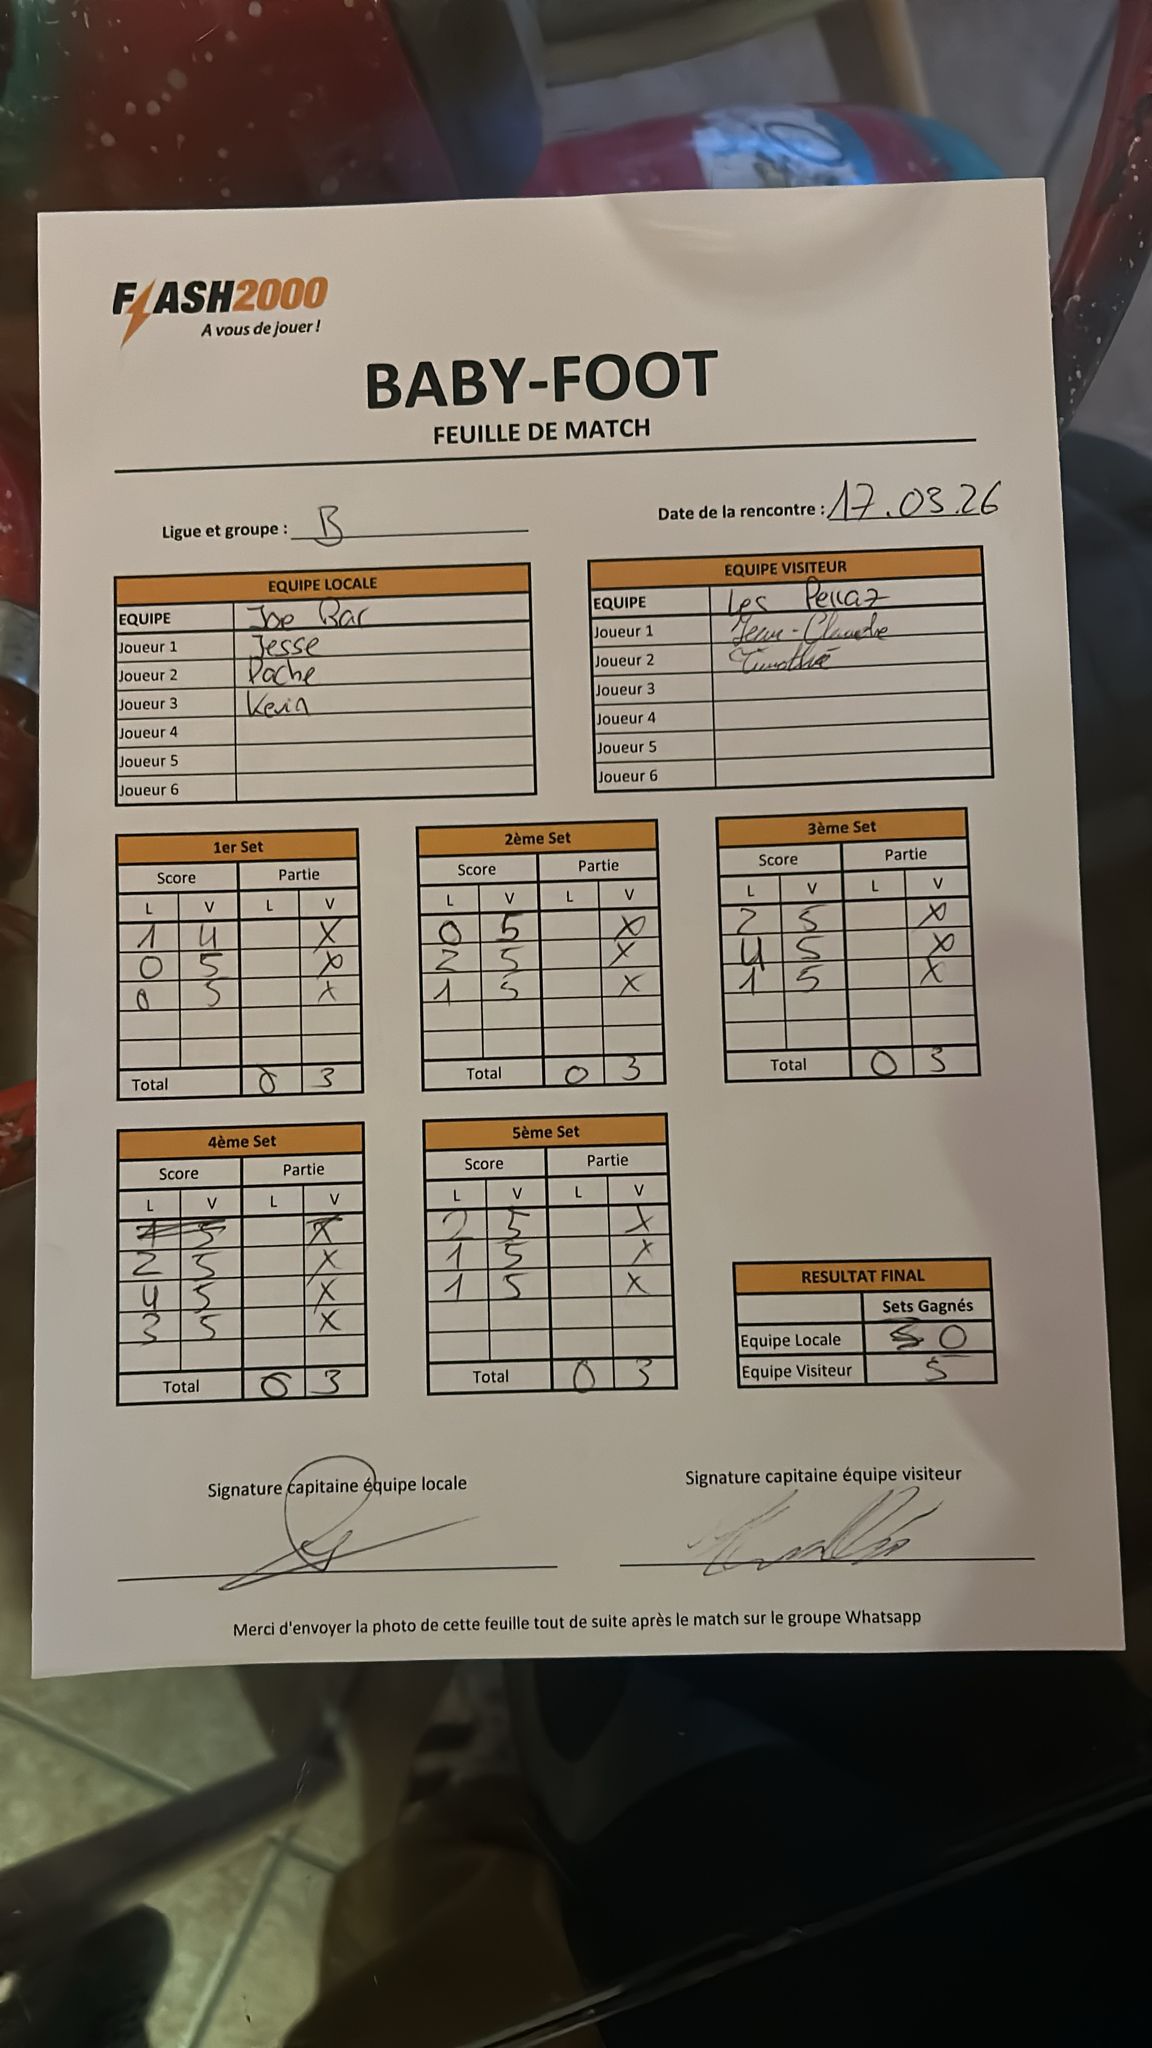 FLASH2000
A vous de jouer !
BABY-FOOT
FEUILLE DE MATCH
Ligue et groupe : B
Date de la rencontre : 17.03.26
EQUIPE LOCALE
EQUIPE Joe Bar
Joueur 1 Jesse
Joueur 2 Pache
Joueur 3 Kevin
Joueur 4
Joueur 5
Joueur 6
EQUIPE VISITEUR
EQUIPE Les Perraz
Joueur 1 Jean-Claude
Joueur 2 Timothée
Joueur 3
Joueur 4
Joueur 5
Joueur 6
1er Set
Score Partie
L V L V
1 4 X
0 5 X
0 5 X
Total 0 3
2ème Set
Score Partie
L V L V
0 5 X
2 5 X
1 5 X
Total 0 3
3ème Set
Score Partie
L V L V
2 5 X
4 5 X
1 5 X
Total 0 3
4ème Set
Score Partie
L V L V
5 X
2 5 X
4 5 X
3 5 X
Total 0 3
5ème Set
Score Partie
L V L V
2 5 X
1 5 X
1 5 X
Total 0 3
RESULTAT FINAL
Sets Gagnés
Equipe Locale 0
Equipe Visiteur 5
Signature capitaine équipe locale
Signature capitaine équipe visiteur
Merci d'envoyer la photo de cette feuille tout de suite après le match sur le groupe Whatsapp